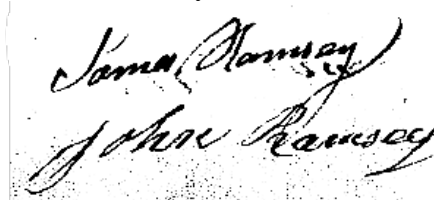 James Ramsey
John Ramsey